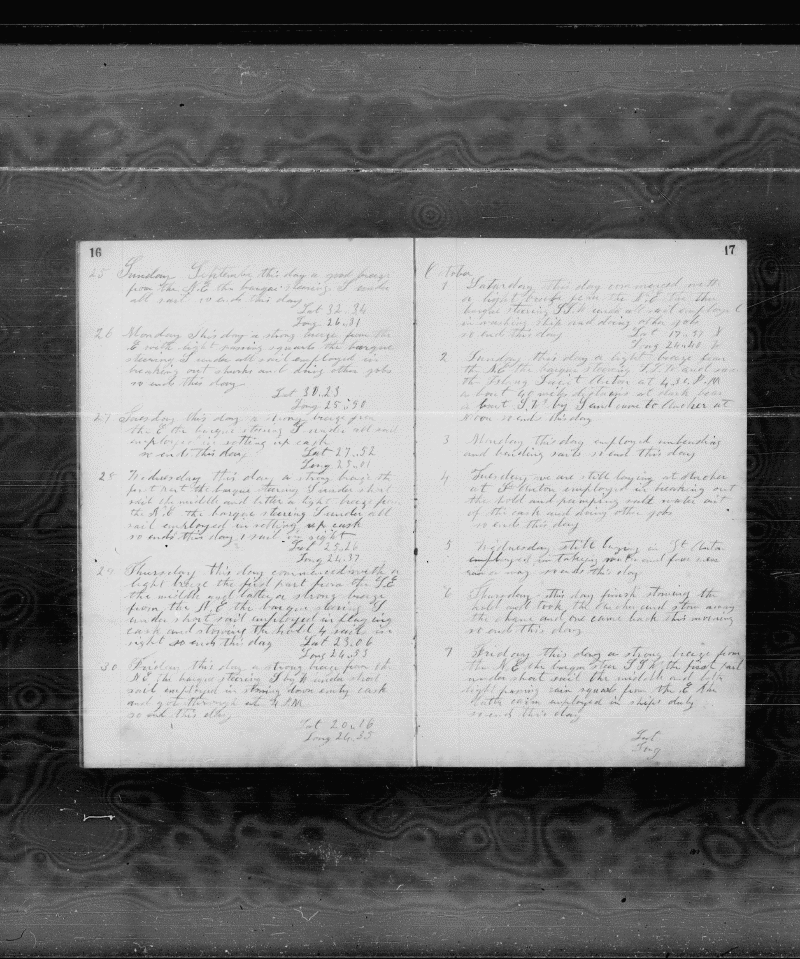 16
25 Sunday September this day a good breeze
from the N.E the barque steering S under
all sail so ends this day
Lat 32.34
Long 26.31
26 Monday This day a strong breeze from the
E with light passing squalls the barque
steering S under all sail employed in
breaking out shooks and doing other jobs
so ends this day
Lat 30.23
Long 25.50
27 Tuesday this day a strong breeze from
the E the barque steering S under all sail
employed in setting up cask
so ends this day Lat 27.52
Long 25.01
28 Wednesday this day a strong breeze the
first part the barque steering S under short
sail the middle and latter a light breeze from
the N.E the barque steering S under all
sail employed in setting up cask
so ends this day 1 sail in sight
Lat 25.26
Long 24.37
29 Thursday this day commenced with a
light breeze the first part from the S.E
the middle and latter a strong breeze
from the N.E the barque steering S
under short sail employed in
cask and stowing the hold 4 sail in
sight so ends this day Lat 23.06
Long 24.33
30 Friday this day a strong breeze from the
N.E the barque steering S by W under short
sail employed in stowing down empty cask
and got through at 4 P.M.
so ends this day
Lat 20.16
Long 24.33
17
October
1 Saturday this day commenced with
a light breeze from the N.E the
barque steering S.S.W under all sail employed
in washing ship and doing other jobs
so ends this day Lat 17.57 N
Long 24.40 W
2 Sunday this day a light breeze from
the N.E the barque steering S.S.W and saw
the Island Saint Anton at 4.30 P.M
about 40 miles distance at dark
about S.W. by S and came to anchor at
Noon so ends this day
3 Monday this day employed unbending
and bending sails so ends this day
4 Tuesday we are still laying at anchor
at St Anton employed in breaking out
the hold and pumping salt water out
of the cask and doing other jobs
so ends this day
5 Wednesday still laying in St Anton
employed in taking and five men
ran away so ends this day
6 Thursday this day finish stowing the
hold and took the anchor and stow away
the chain and one came back this morning
so ends this day
7 Friday this day a strong breeze from
the N.E the barque steer S.S.W the first part
under short sail the middle and latter
light passing rain squals from the E the
latter calm employed in ships duty
so ends this day
Lat
Long